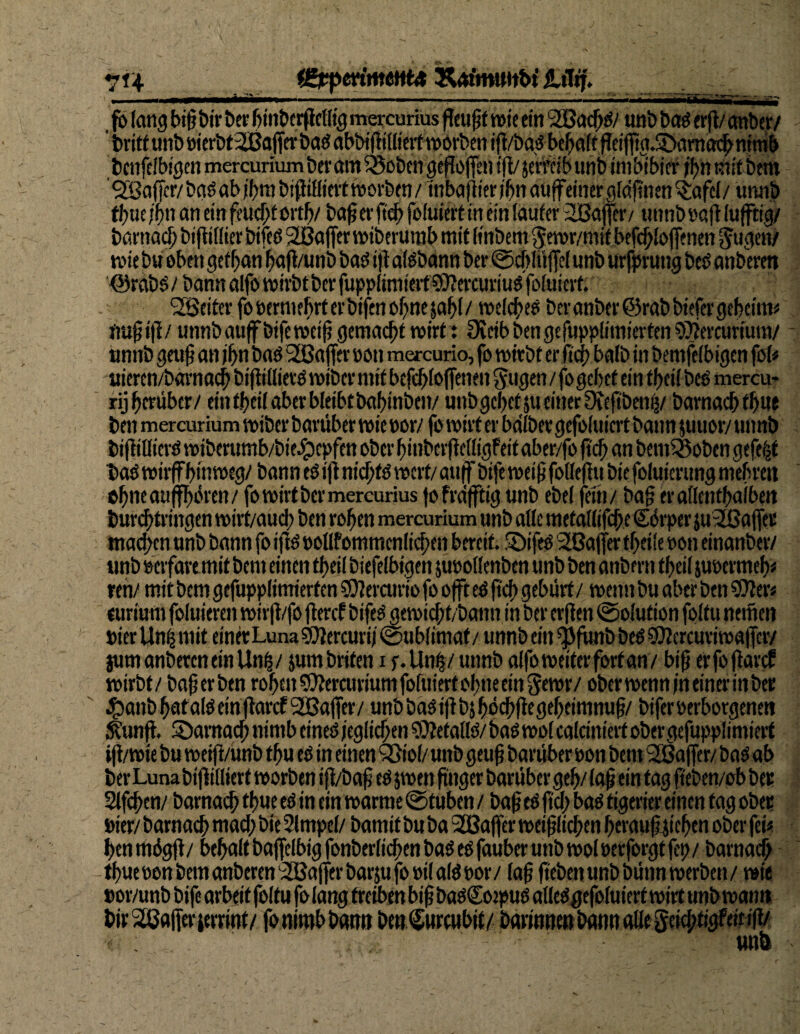 714 Experimenta Raimundi Lilij.
so lang biß dir der hinderstellig mercurius fleußt wie ein Wachs/ und das erst/ ander/
dritt und vierdt Wasser das abdistilliert wörden ist/das behalt fleissig. Darnach nimb
denselbigen mercurium der am Boden geflossen ist/ zerreib und imbibier jhn mit dem
Wasser/ das ab jhm distilliert worden / inbassier jhn auff einer gläsinen Tafel/ unnd
thue jhn an ein feucht orth/ daß er sich soluiert in ein lauter Wasser/ unnd vast lufftig/
darnach distillier dises Wasser widerumb mit lindem Fewr/mit beschlossenen Fugen/
wie du oben gethan hast/und das ist alsdann der Schlüssel und ursprung des anderen
Grads/ dann also wirdt der supplimiert Mercurius soluiert.
Weiter so vermehrt er disen ohne zahl/ welches der ander Grad dieser geheim⸗
nuß ist/ unnd auff dise weiß gemacht wirt: Reib den gesupplimierten Mercurium/
unnd geuß an jhn das Wasser von mercurio, so wirdt er sich bald in demselbigen sol⸗
uieren/darnach distilliers wider mit beschlossenen Fugen / so gehet ein theil des mercu-
rij herüber/ ein theil aber bleibt dahinden/ und gehet zu einer Residentz/ darnach thue
den mercurium wider darüber wie vor/ so wirt er bälder gesoluiert dann zuuor/ unnd
distilliers widerumb/die Hepfen oder hinderstelligkeit aber/so sich an dem Boden gesetzt
das wirff hinweg/ dann es ist nichts wert/ auff dise weiß solleſtu die soluierung mehren
ohne auffhören / so wirt der mercurius so kräfftig und edel sein/ daß er allenthalben
durchtringen wirt/auch den rohen mercurium und alle metallische Cörper zu Wasser
machen und dann so ists vollkommenlichen bereit. Dises Wasser theile von einander/
und verfare mit dem einen theil dieselbigen zuvollenden und den andern theil zuvermeh⸗
ren/ mit dem gesupplimierten Mercurio so offt es sich gebürt/ wenn du aber den Mer⸗
curium soluieren wirst/so sterck dises gewicht/dann in der ersten Solution soltu nemen
vier Untz mit einer Luna Mercurij Sublimat/ unnd ein Pfund des Mercuriwasser/
zum anderen ein Untz/ zum driten 1 s. Untz/ unnd also weiter fort an/ biß er so starck
wirdt/ daß er den rohen Mercurium soluiert ohne ein Fewr/ oder wenn jn einer in der
Hand hat als ein starck Wasser/ und das ist dz höchste geheimnuß/ diser verborgenen
Kunst. Darnach nimb eines jeglichen Metalls/ das wol calciniert oder gesupplimiert
ist/wie du weist/und thu es in einen Viol/ und geuß darüber von dem Wasser/ das ab
der Luna distilliert worden ist/daß es zwen finger darüber geh/ laß ein tag sieben/ob der
Aschen/ darnach thue es in ein warme Stuben / daß es sich das tigerier einen tag oder
vier/ darnach mach die Ampel/ damit du da Wasser weißlichen herauß ziehen oder sei⸗
hen mögst/ behalt dasselbig sonderlichen das es sauber und wol versorgt sey / darnach
thue von dem anderen Wasser darzu so vil als vor/ laß sieden und dünn werden/ wie
vor/und dise arbeit soltu so lang treiben biß das Corpus alles gesoluiert wirt und wann
dir Wasser zerrint/ so nimb dann den Curcubit/ darinnen dann alle Feichtigkeit ist/
und